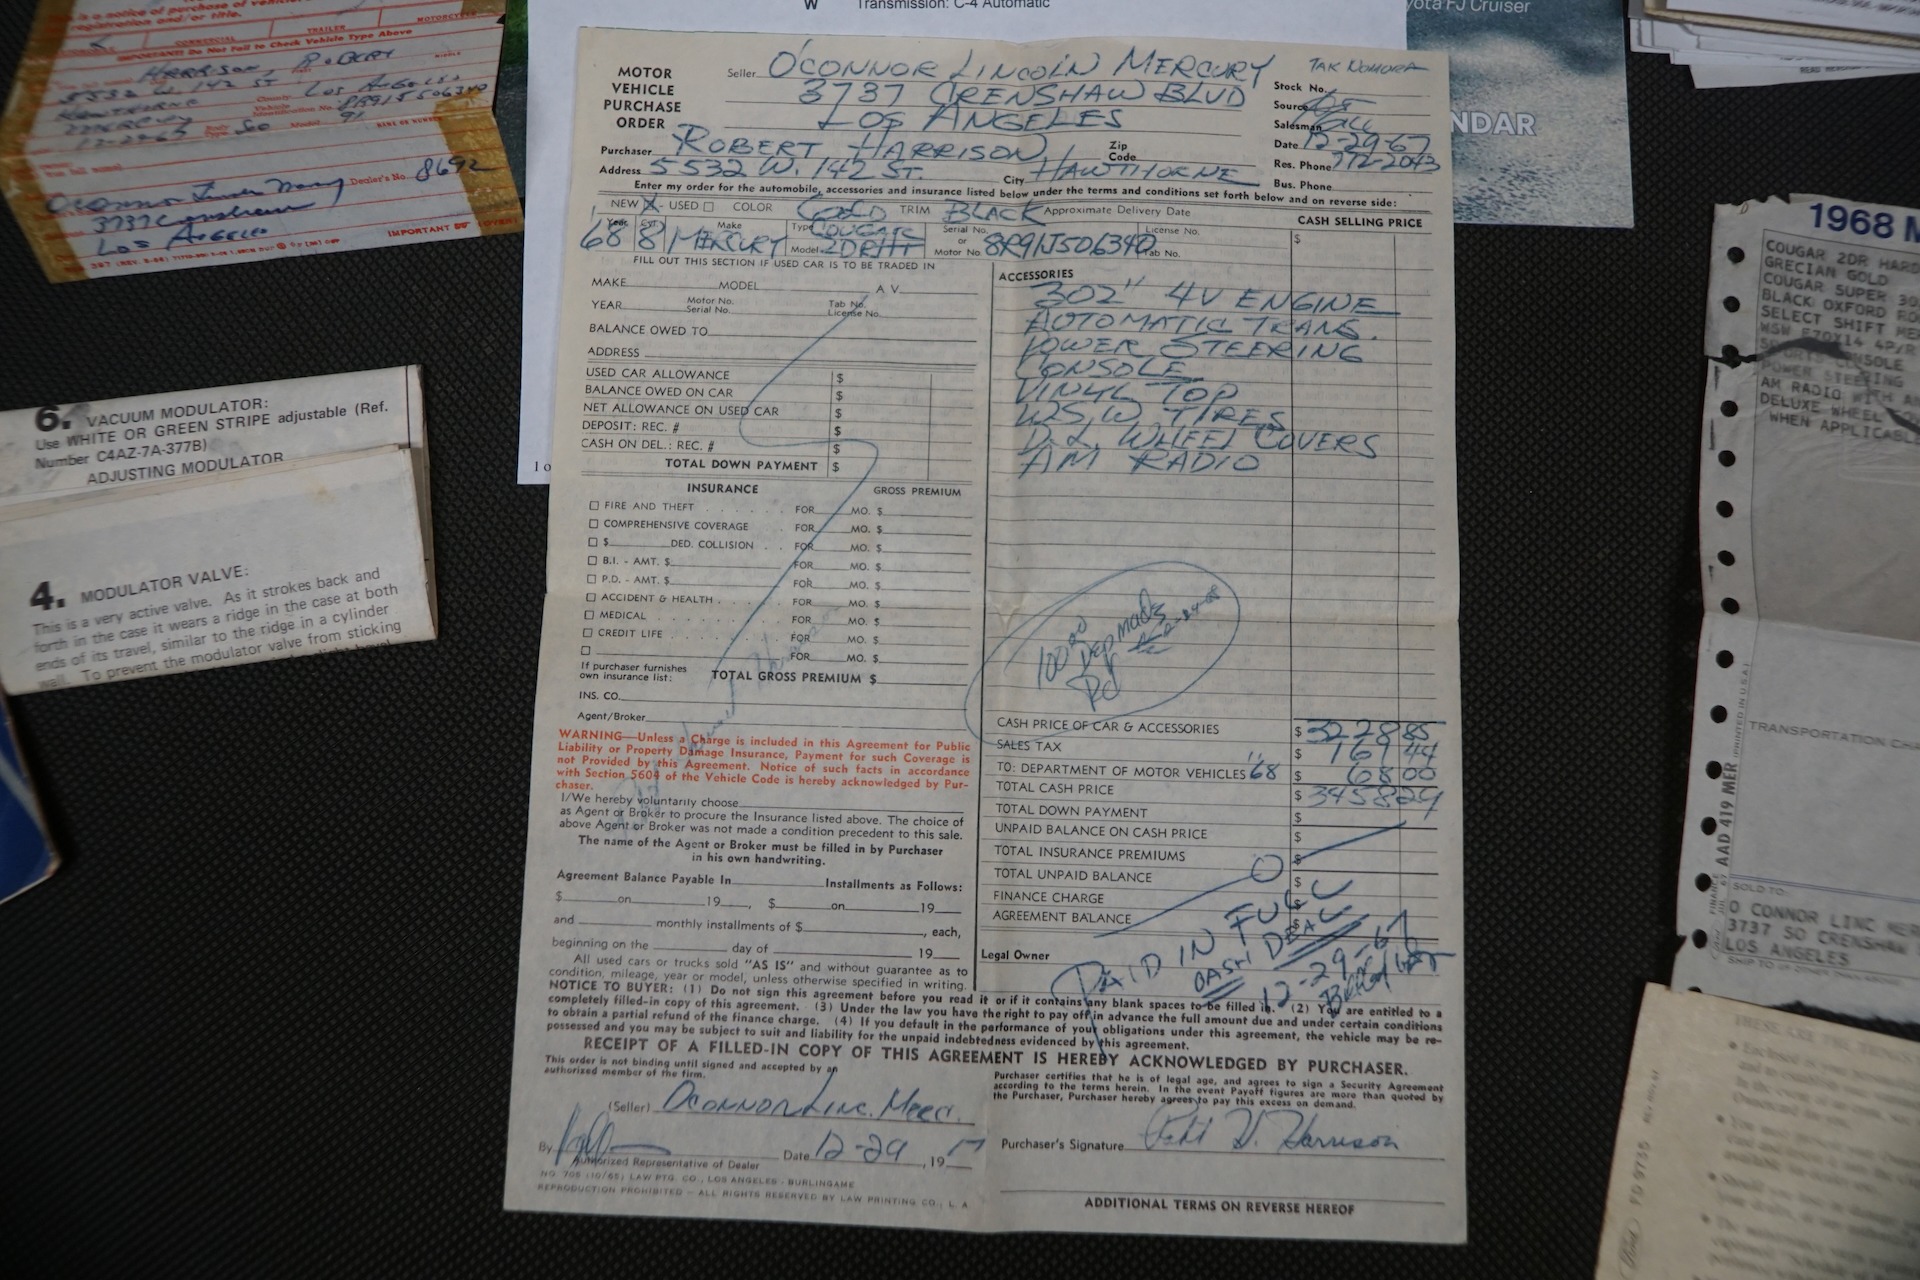 W Transmission: C-4 Automatic
Toyota FJ Cruiser
NDAR
notice of purchase of vehicle
registration and/or title.
COMMERCIAL TRAILER MOTORCYCLE
IMPORTANT: Do Not Fail to Check Vehicle Type Above
HARRISON, ROBERT
5532 W. 142 ST Los Angeles
HAWTHORNE 8R91J506340
MERCURY
12-29-67
O'Connor Linc Merc Dealer's No. 8692
3737 Crenshaw
Los Angeles
IMPORTANT (OVER)
6. VACUUM MODULATOR:
Use WHITE OR GREEN STRIPE adjustable (Ref.
Number C4AZ-7A-377B)
ADJUSTING MODULATOR
4. MODULATOR VALVE:
This is a very active valve. As it strokes back and
forth in the case it wears a ridge in the case at both
ends of its travel, similar to the ridge in a cylinder
wall. To prevent the modulator valve from sticking
MOTOR
VEHICLE
PURCHASE
ORDER
Seller O'CONNOR LINCOLN MERCURY
3737 CRENSHAW BLVD
LOS ANGELES
TAK NOMURA
Stock No.
Source
Salesman
Date 12-29-67
Res. Phone 772-2043
Bus. Phone
Purchaser ROBERT HARRISON Zip Code
Address 5532 W. 142 ST. City HAWTHORNE
Enter my order for the automobile, accessories and insurance listed below under the terms and conditions set forth below and on reverse side:
NEW X - USED ☐ COLOR GOLD TRIM BLACK Approximate Delivery Date
CASH SELLING PRICE
Year 68 Cyl. 8 Make MERCURY Type COUGAR Model 2DRHT Serial No. or Motor No. 8R91J506340 License No. Tab No.
$
FILL OUT THIS SECTION IF USED CAR IS TO BE TRADED IN
MAKE MODEL A V
YEAR Motor No. Serial No. Tab No. License No.
BALANCE OWED TO
ADDRESS
USED CAR ALLOWANCE $
BALANCE OWED ON CAR $
NET ALLOWANCE ON USED CAR $
DEPOSIT: REC. # $
CASH ON DEL.: REC. # $
TOTAL DOWN PAYMENT $
INSURANCE GROSS PREMIUM
☐ FIRE AND THEFT FOR MO. $
☐ COMPREHENSIVE COVERAGE FOR MO. $
☐ $ DED. COLLISION FOR MO. $
☐ B.I. - AMT. $ FOR MO. $
☐ P.D. - AMT. $ FOR MO. $
☐ ACCIDENT & HEALTH FOR MO. $
☐ MEDICAL FOR MO. $
☐ CREDIT LIFE FOR MO. $
☐ FOR MO. $
If purchaser furnishes
own insurance list: TOTAL GROSS PREMIUM $
INS. CO.
Agent/Broker
WARNING—Unless a Charge is included in this Agreement for Public
Liability or Property Damage Insurance, Payment for such Coverage is
not Provided by this Agreement. Notice of such facts in accordance
with Section 5604 of the Vehicle Code is hereby acknowledged by Pur-
chaser.
I/We hereby voluntarily choose
as Agent or Broker to procure the Insurance listed above. The choice of
above Agent or Broker was not made a condition precedent to this sale.
The name of the Agent or Broker must be filled in by Purchaser
in his own handwriting.
Agreement Balance Payable In Installments as Follows:
$ on 19 , $ on 19
and monthly installments of $ , each,
beginning on the day of 19
All used cars or trucks sold "AS IS" and without guarantee as to
condition, mileage, year or model, unless otherwise specified in writing.
ACCESSORIES
302" 4V ENGINE
AUTOMATIC TRANS.
POWER STEERING
CONSOLE
VINYL TOP
W.S.W. TIRES
D.L. WHEEL COVERS
AM RADIO
100.00
Dep made
CASH PRICE OF CAR & ACCESSORIES $ 3228 85
SALES TAX $ 161 44
TO: DEPARTMENT OF MOTOR VEHICLES '68 $ 68 00
TOTAL CASH PRICE $ 3458 29
TOTAL DOWN PAYMENT $
UNPAID BALANCE ON CASH PRICE $
TOTAL INSURANCE PREMIUMS $
TOTAL UNPAID BALANCE $
FINANCE CHARGE $
AGREEMENT BALANCE $
Legal Owner
PAID IN FULL
CASH DEAL
12-29-67
NOTICE TO BUYER: (1) Do not sign this agreement before you read it or if it contains any blank spaces to be filled in. (2) You are entitled to a
completely filled-in copy of this agreement. (3) Under the law you have the right to pay off in advance the full amount due and under certain conditions
to obtain a partial refund of the finance charge. (4) If you default in the performance of your obligations under this agreement, the vehicle may be re-
possessed and you may be subject to suit and liability for the unpaid indebtedness evidenced by this agreement.
RECEIPT OF A FILLED-IN COPY OF THIS AGREEMENT IS HEREBY ACKNOWLEDGED BY PURCHASER.
This order is not binding until signed and accepted by an
authorized member of the firm.
Purchaser certifies that he is of legal age, and agrees to sign a Security Agreement
according to the terms herein. In the event Payoff figures are more than quoted by
the Purchaser, Purchaser hereby agrees to pay this excess on demand.
(Seller) O'CONNOR LINC. MERC.
By Date 12-29, 19
Authorized Representative of Dealer
Purchaser's Signature Robt W. Harrison
NO. 705 (10/65) LAW PTG. CO., LOS ANGELES - BURLINGAME
REPRODUCTION PROHIBITED - ALL RIGHTS RESERVED BY LAW PRINTING CO., L. A.
ADDITIONAL TERMS ON REVERSE HEREOF
1968 M
COUGAR 2DR HARD
GRECIAN GOLD
COUGAR SUPER 30
BLACK OXFORD RO
SELECT SHIFT MER
WSW E70X14 4P/R
SPORTS CONSOLE
POWER STEERING
AM RADIO WITH AN
DELUXE WHEEL
WHEN APPLICABL
TRANSPORTATION CHA
AAD 419 MER PRINTED IN U.S.A.
SOLD TO
O CONNOR LINC MER
3737 SO CRENSHAW
LOS ANGELES
Ford FD 9735